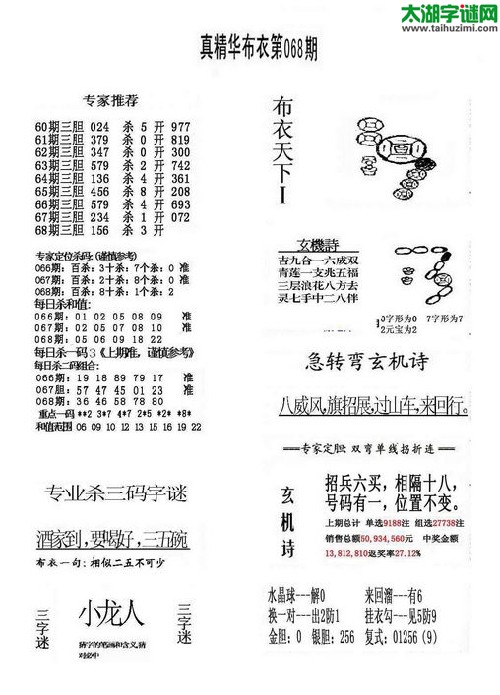 太湖字谜网
www.taihuzimi.com
真精华布衣第068期
专家推荐
60期三胆 024 杀 5 开 977
61期三胆 379 杀 0 开 819
62期三胆 347 杀 0 开 300
63期三胆 579 杀 2 开 742
64期三胆 136 杀 4 开 361
65期三胆 456 杀 8 开 208
66期三胆 579 杀 4 开 693
67期三胆 234 杀 1 开 072
68期三胆 156 杀 3 开
专家定位杀码:(谨慎参考)
066期: 百杀:3十杀:7个杀:0 准
067期: 百杀:2十杀:8个杀:0 准
068期: 百杀:8十杀:1个杀:2
每日杀和值:
066期: 01 02 05 08 09 准
067期: 02 05 07 08 10 准
068期: 05 06 09 18 22
每日杀一码3《上期准,谨慎参考》
每日杀二码组合:
066期: 19 18 89 79 17 准
067胆: 57 47 45 01 23 准
068期: 36 46 58 78 80
重点一码 **2 3*7 4*7 2*5 *2* *8*
和值范围 06 09 10 12 13 15 16 19 22
专业杀三码字谜
酒家到,要喝好,三五碗
布衣一句:相似二五不可少
三字迷
小龙人
猜字的笔画和含义,猜对必中
三字迷
布衣天下I
玄機詩
吉九台一六成双
青莲一支兆五福
三层浪花八方去
灵七手中二八伴
0字形为0 7字形为7
2元宝为2
急转弯玄机诗
八威风,旗招展,过山车,来回行。
==专家定胆 双弯单线拐折连==
玄机诗
招兵六买,相隔十八,
号码有一,位置不变。
上期总计 单选9188注 组选27738注
销售总额50,934,560元 中奖金额
13,812,810返奖率27.12%
水晶球---解0 来回溜---有6
换一对---出2防1 挂衣勾---见5防9
金胆: 0 银胆: 256 复式: 01256 (9)